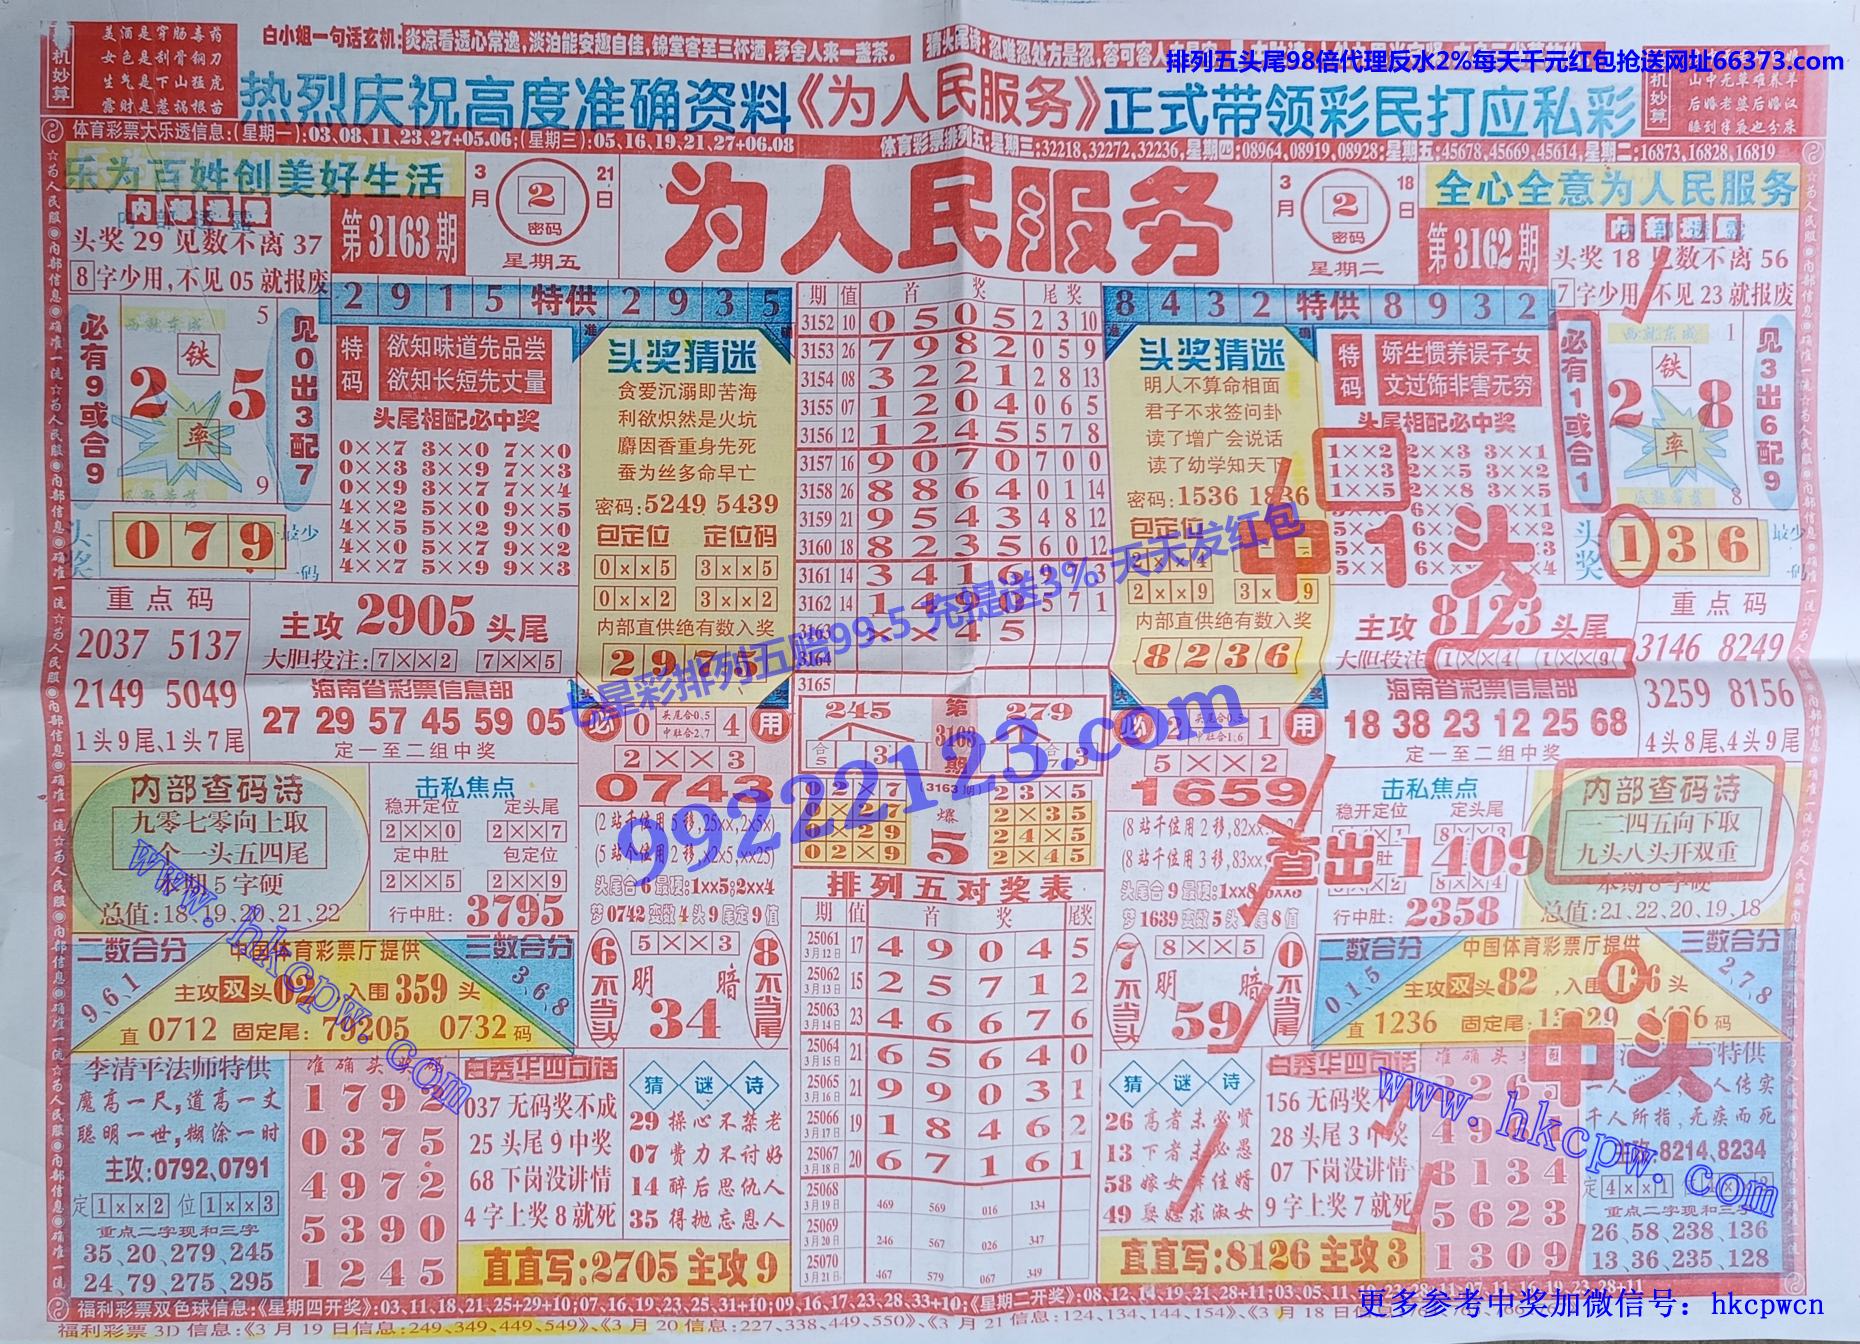 机妙算
美酒是穿肠毒药
女色是刮骨钢刀
生气是下山猛虎
露财是惹祸根苗
白小姐一句话玄机:炎凉看透心常逸,淡泊能安趣自佳,锦堂客至三杯酒,茅舍人来一盏茶。
排列五头尾98倍代理反水2%每天千元红包抢送网址66373.com
热烈庆祝高度准确资料《为人民服务》正式带领彩民打应私彩
机妙算
山中无草难养羊
后婚老婆后婚汉
睡到半夜也分床
体育彩票大乐透信息:(星期一):03,08,11,23,27+05.06;(星期三):05,16,19,21,27+06.08
体育彩票排列五:星期三:32218,32272,32236,星期四:08964,08919,08928:星期五:45678,45669,45614,星期二:16873,16828,16819
乐为百姓创美好生活
内部透露
头奖29见数不离37
8字少用,不见05就报废
第3163期
3月21日
2
密码
星期五
为人民服务
3月18日
2
密码
星期二
第3162期
全心全意为人民服务
内部透露
头奖18见数不离56
7字少用 不见23就报废
必有9或合9
5
铁
2 5
率
9
见0出3配7
头奖
079
最少一码
2915特供2935
特码
欲知味道先品尝
欲知长短先丈量
头尾相配必中奖
0××7 3××0 7××0
0××3 3××9 7××3
0××9 3××7 7××4
4××2 5××0 9××5
4××5 5××2 9××0
4××0 5××7 9××2
4××7 5××9 9××3
准 确
头奖猜迷
贪爱沉溺即苦海
利欲炽然是火坑
麝因香重身先死
蚕为丝多命早亡
密码:5249 5439
包定位 定位码
0××5 3××5
0××2 3××2
内部直供绝有数入奖
2975
期 值 首 奖 尾奖
3152 10 0505 2 3 10
3153 26 7982 0 5 9
3154 08 3221 2 8 13
3155 07 1204 0 6 5
3156 12 1245 5 7 8
3157 16 9070 7 0 0
3158 26 8864 0 1 14
3159 21 9543 4 8 12
3160 18 8235 6 0 12
3161 14 3416 9 7 3
3162 14 1490 5 7 1
3163 ××45
3164
3165
8432特供8932
头奖猜迷
明人不算命相面
君子不求签问卦
读了增广会说话
读了幼学知天下
密码:1536 1836
包定位
2××4
2××9 3××9
内部直供绝有数入奖
8236
特码
娇生惯养误子女
文过饰非害无穷
头尾相配必中奖
1××2 2××3 3××1
1××3 2××5 3××2
1××5 2××8 3××5
中1头
必有1或合1
1
铁
2 8
率
8
见3出6配9
头奖
136
最少一码
七星彩排列五赔99.5 充提送3% 天天发红包
99222123.com
重点码
2037 5137
2149 5049
1头9尾、1头7尾
主攻2905头尾
大胆投注:7××2 7××5
海南省彩票信息部
27 29 57 45 59 05
定一至二组中奖
必 0 头尾合0.5 中肚合2.7 4 用
2××3
0743
245 第3163期 279
必 2 头尾合0.5 中肚合1.6 1 用
5××2
1659
主攻8123头尾
大胆投注 1××4 1××9
海南省彩票信息部
18 38 23 12 25 68
定一至二组中奖
重点码
3146 8249
3259 8156
4头8尾、4头9尾
内部查码诗
九零七零向上取
个一头五四尾
本期5字硬
总值:18、19、20、21、22
击私焦点
稳开定位 定头尾
2××0 2××7
定中肚 包定位
2××5 2××9
行中肚:3795
头尾合6最硬:1××5;2××4
梦0742变数4头9尾定9值
3163期
爆
5
02×7
0×27
0×29
02×9
23×5
2×35
24×5
2×45
头尾合9最硬:1××8
梦1639变数5头 尾8值
击私焦点
稳开定位 定头尾
查出1409
行中肚:2358
内部查码诗
一二四五向下取
九头八头开双重
本期8字硬
总值:21、22、20、19、18
二数合分
9、6、1
中国体育彩票厅提供
主攻双头02 入围359头
直0712 固定尾:79205 0732码
三数合分
3、6、8
6不当头
5××3
明 暗
34
8不当尾
排列五对奖表
期 值 首 奖 尾奖
25061 3月12日 17 4 9 0 4 5
25062 3月13日 15 2 5 7 1 2
25063 3月14日 23 4 6 6 7 6
25064 3月15日 21 6 5 6 4 0
25065 3月16日 21 9 9 0 3 1
25066 3月17日 19 1 8 4 6 2
25067 3月18日 20 6 7 1 6 1
25068 3月19日 469 569 016 134
25069 3月20日 246 567 026 347
25070 3月21日 467 579 067 349
7不当头
8××5
明 暗
59
0不当尾
二数合分
0、1、5
中国体育彩票厅提供
主攻双头82,入围136头
直1236 固定尾:
三数合分
2、7、8
中头
李清平法师特供
魔高一尺,道高一丈
聪明一世,糊涂一时
主攻:0792、0791
定1××2 位1××3
重点二字现和三字
35、20、279、245
24、79、275、295
准确头奖
1792
0375
4972
5390
1245
白秀华四句话
037无码奖不成
25头尾9中奖
68下岗没讲情
4字上奖8就死
猜谜诗
29操心不禁老
07费力不讨好
14醉后思仇人
35得抛忘恩人
直直写:2705主攻9
猜谜诗
26高者未必贤
13下者未必愚
58嫁女择佳婿
49娶媳求淑女
白秀华四句话
156无码奖不
28头尾3中奖
07下岗没讲情
9字上奖7就死
直直写:8126主攻3
准确头奖
8134
5623
1309
特供
人传实
千人所指,无疾而死
主攻:8214、8234
定4××1
重点二字现和三字
26、58、238、136
13、36、235、128
www.hkcpw.com
www.hkcpw.com
福利彩票双色球信息:《星期四开奖》:03、11、18、21、25+29+10;07、16、19、23、25、31+10;09、16、20、23、28、33+10;《星期二开奖》:08、12、14、19、21、28+11;
福利彩票3D信息:《3月19日信息:249、349、449、549》、《3月20信息:227、338、449、550》、《3月21信息:124、134、144、154》、
更多参考中奖加微信号：hkcpwcn